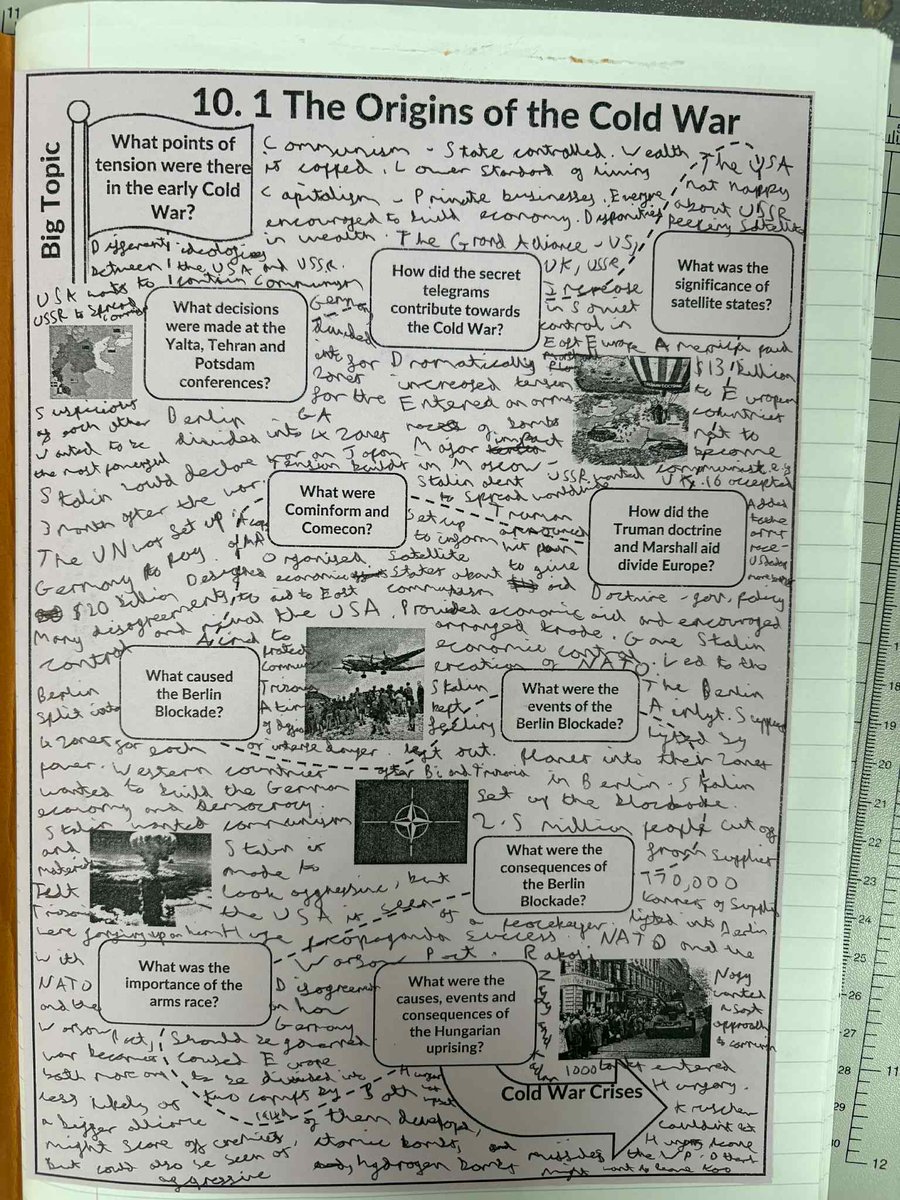 10. 1 The Origins of the Cold War
Big Topic
What points of
tension were there
in the early Cold
War?
Communism - State controlled. Wealth
is capped. Lower Standard of living
Capitalism - Private businesses. Everyone
encouraged to build economy. Disparities
in wealth. The Grand Alliance - US,
UK, USSR
The USA
not happy
about USSR
keeping satellite
Different ideologies
between the USA and USSR.
USA wants to contain communism
USSR to Spread
How did the secret
telegrams
contribute towards
the Cold War?
What was the
significance of
satellite states?
Increase
in Soviet
control in
East Europe
What decisions
were made at the
Yalta, Tehran and
Potsdam
conferences?
Germany
divided
into
zones
for the
Dramatically
increased tension
Entered an arms
race of bombs
Major impact
in Moscow -
Stalin
America paid
$13 billion
to European
countries
not to
become
communist e.g
UK. 16 accepted
Suspicious
of each other
wanted to be
the most powerful
Berlin - GA
divided into 4 zones
Stalin would declare war on Japan
3 month after the war.
Tension builds
USSR wanted
to Spread worldwide
What were
Cominform and
Comecon?
Set up
to inform
Satellite
States about
communism
Truman
announced
his plan
to give
aid
How did the
Truman doctrine
and Marshall aid
divide Europe?
Added
to the
arms
race -
The UN was Set up
Germany to pay
$20 billion
Organised
economic
aid to East
Designed
to
Many disagreements
control and rival the USA.
Doctrine - gov. policy
Provided economic aid and encouraged
arranged trade. Gave Stalin
economic control. Led to the
creation of NATO.
What caused
the Berlin
Blockade?
Berlin
Split into
4 zones for each
power. Western countries
wanted to build the German
economy and Democracy.
Stalin wanted communism
and
Felt
Trizonia
were
or intense danger.
Stalin
kept
feeling
left out.
after Bi and Trizonia
What were the
events of the
Berlin Blockade?
The Berlin
Airlift. Supplies
lifted by
planes into their zones
in Berlin. Stalin
set up the blockade.
2.5 million people cut off
from supplies
Stalin is
made to
look aggressive, but
the USA is seen
of a peacekeeper.
Huge propaganda success
What were the
consequences of
the Berlin
Blockade?
lifted into Berlin
NATO and the
Warsaw Pact.
What was the
importance of the
arms race?
with
NATO
and the
Warsaw Pact,
war becomes
both more and
less likely as
a bigger alliance
might scare off enemies,
but could also be seen as
aggressive
Disagreement
on how
Germany
should be governed
caused Europe
to be divided into
two camps
Both
of them develop
atomic bombs,
and hydrogen bombs
and missiles
What were the
causes, events and
consequences of
the Hungarian
uprising?
Nagy
wanted
a soft
approach
to communism
Cold War Crises
1000 tanks entered
Hungary.
couldn't let
Hungary leave
the WP. Others
might want to leave too